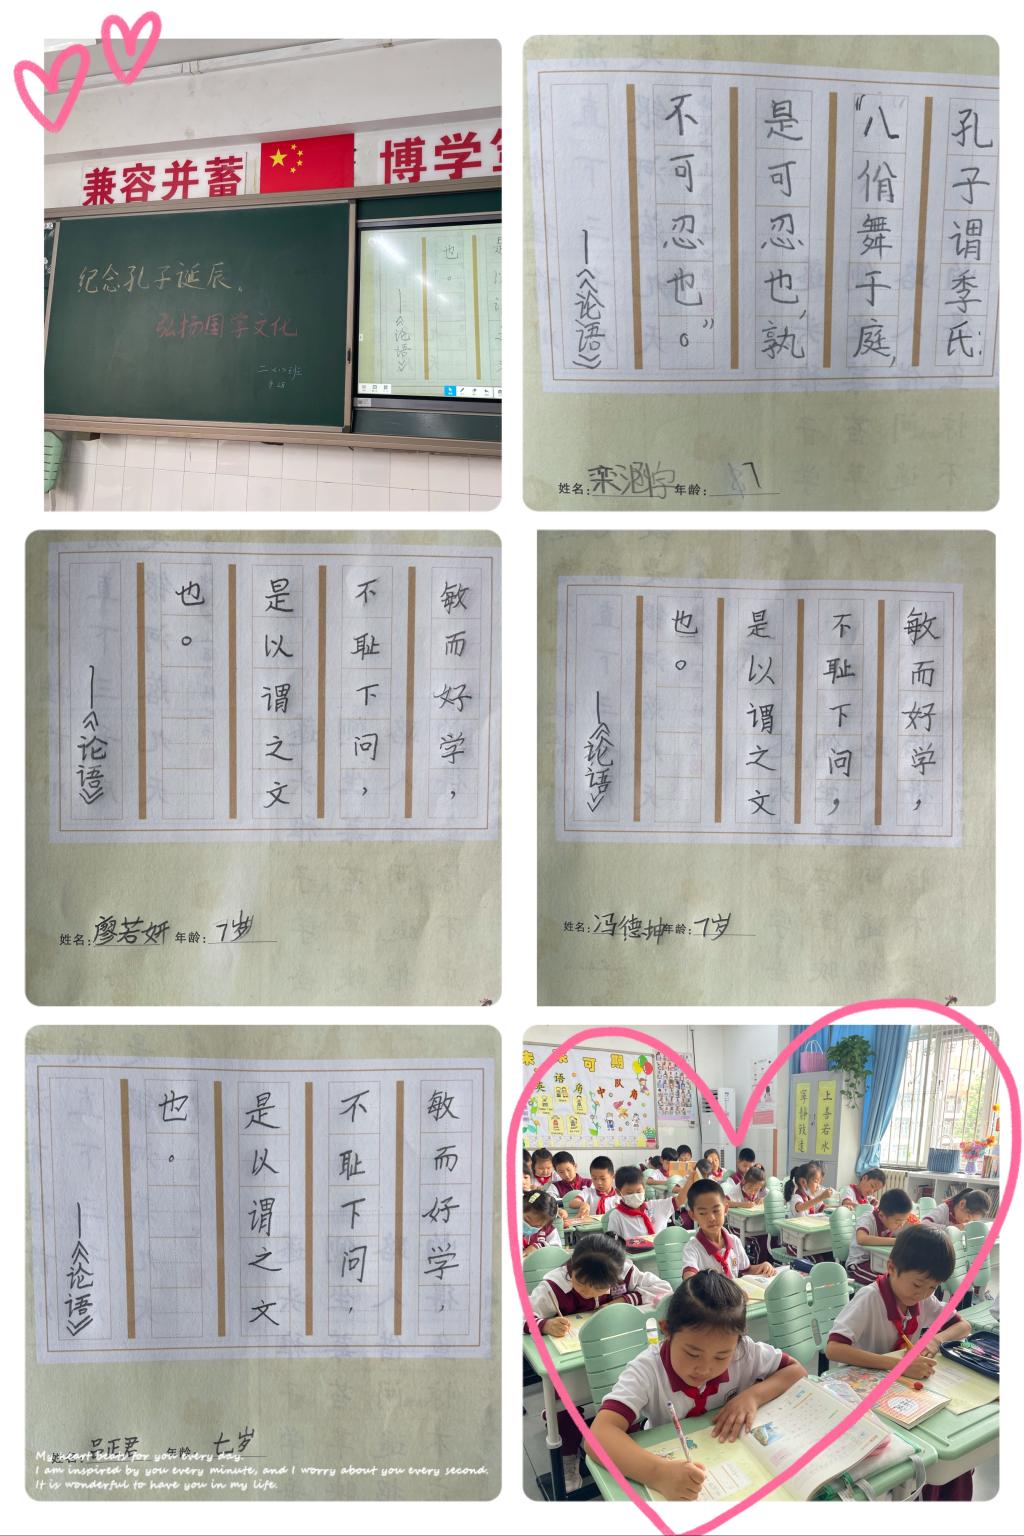 兼容并蓄
博学
纪念孔子诞辰、
弘扬国学文化
二〈1〉班
9.28
也。
——《论语》
孔子谓季氏:
“八佾舞于庭,
是可忍也,孰
不可忍也。”
——《论语》
姓名: 栾涵宇 年龄: 7
敏而好学,
不耻下问,
是以谓之文
也。
——《论语》
姓名: 廖若妍 年龄: 7岁
敏而好学,
不耻下问,
是以谓之文
也。
——《论语》
姓名: 冯德坤 年龄: 7岁
敏而好学,
不耻下问,
是以谓之文
也。
——《论语》
姓名: 吕正君 年龄: 七岁
My heart beats for you every day.
I am inspired by you every minute, and I worry about you every second.
It is wonderful to have you in my life.
未来可期
英语角
中队角
上善若水
宁静致远